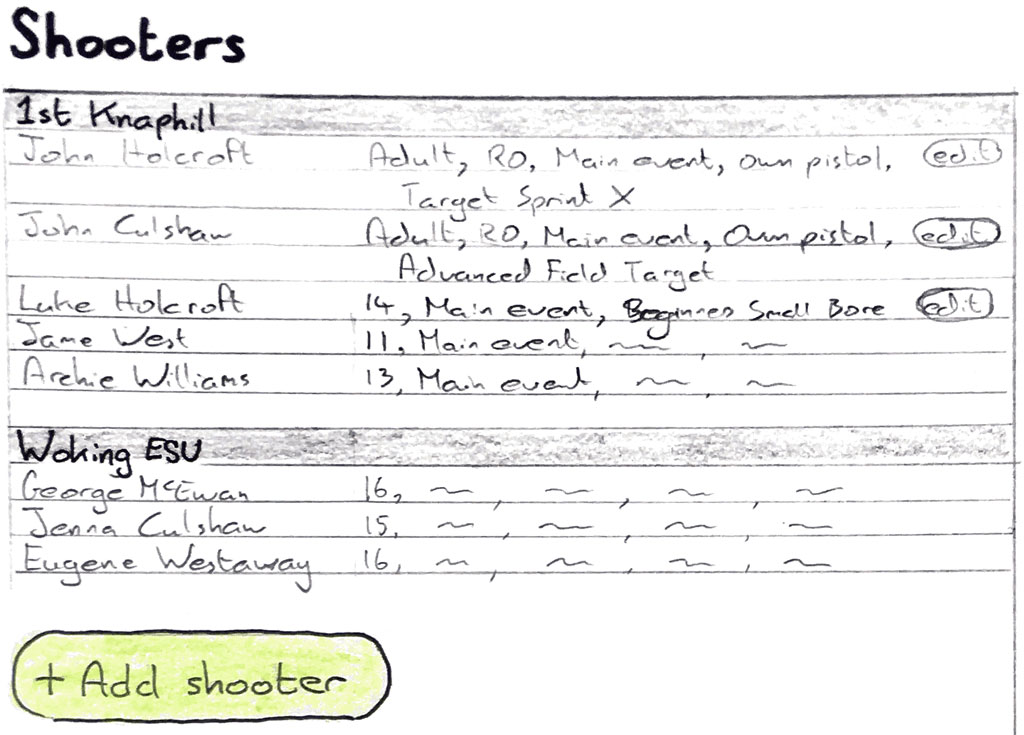 Shooters
1st Knaphill
John Holcroft Adult, RO, Main event, Own pistol, edit
Target Sprint X
John Culshaw Adult, RO, Main event, Own pistol, edit
Advanced Field Target
Luke Holcroft 14, Main event, Beginner Small Bore edit
Jame West 11, Main event,
Archie Williams 13, Main event,
Woking ESU
George McEwan 16,
Jenna Culshaw 15,
Eugene Westaway 16,
+ Add shooter